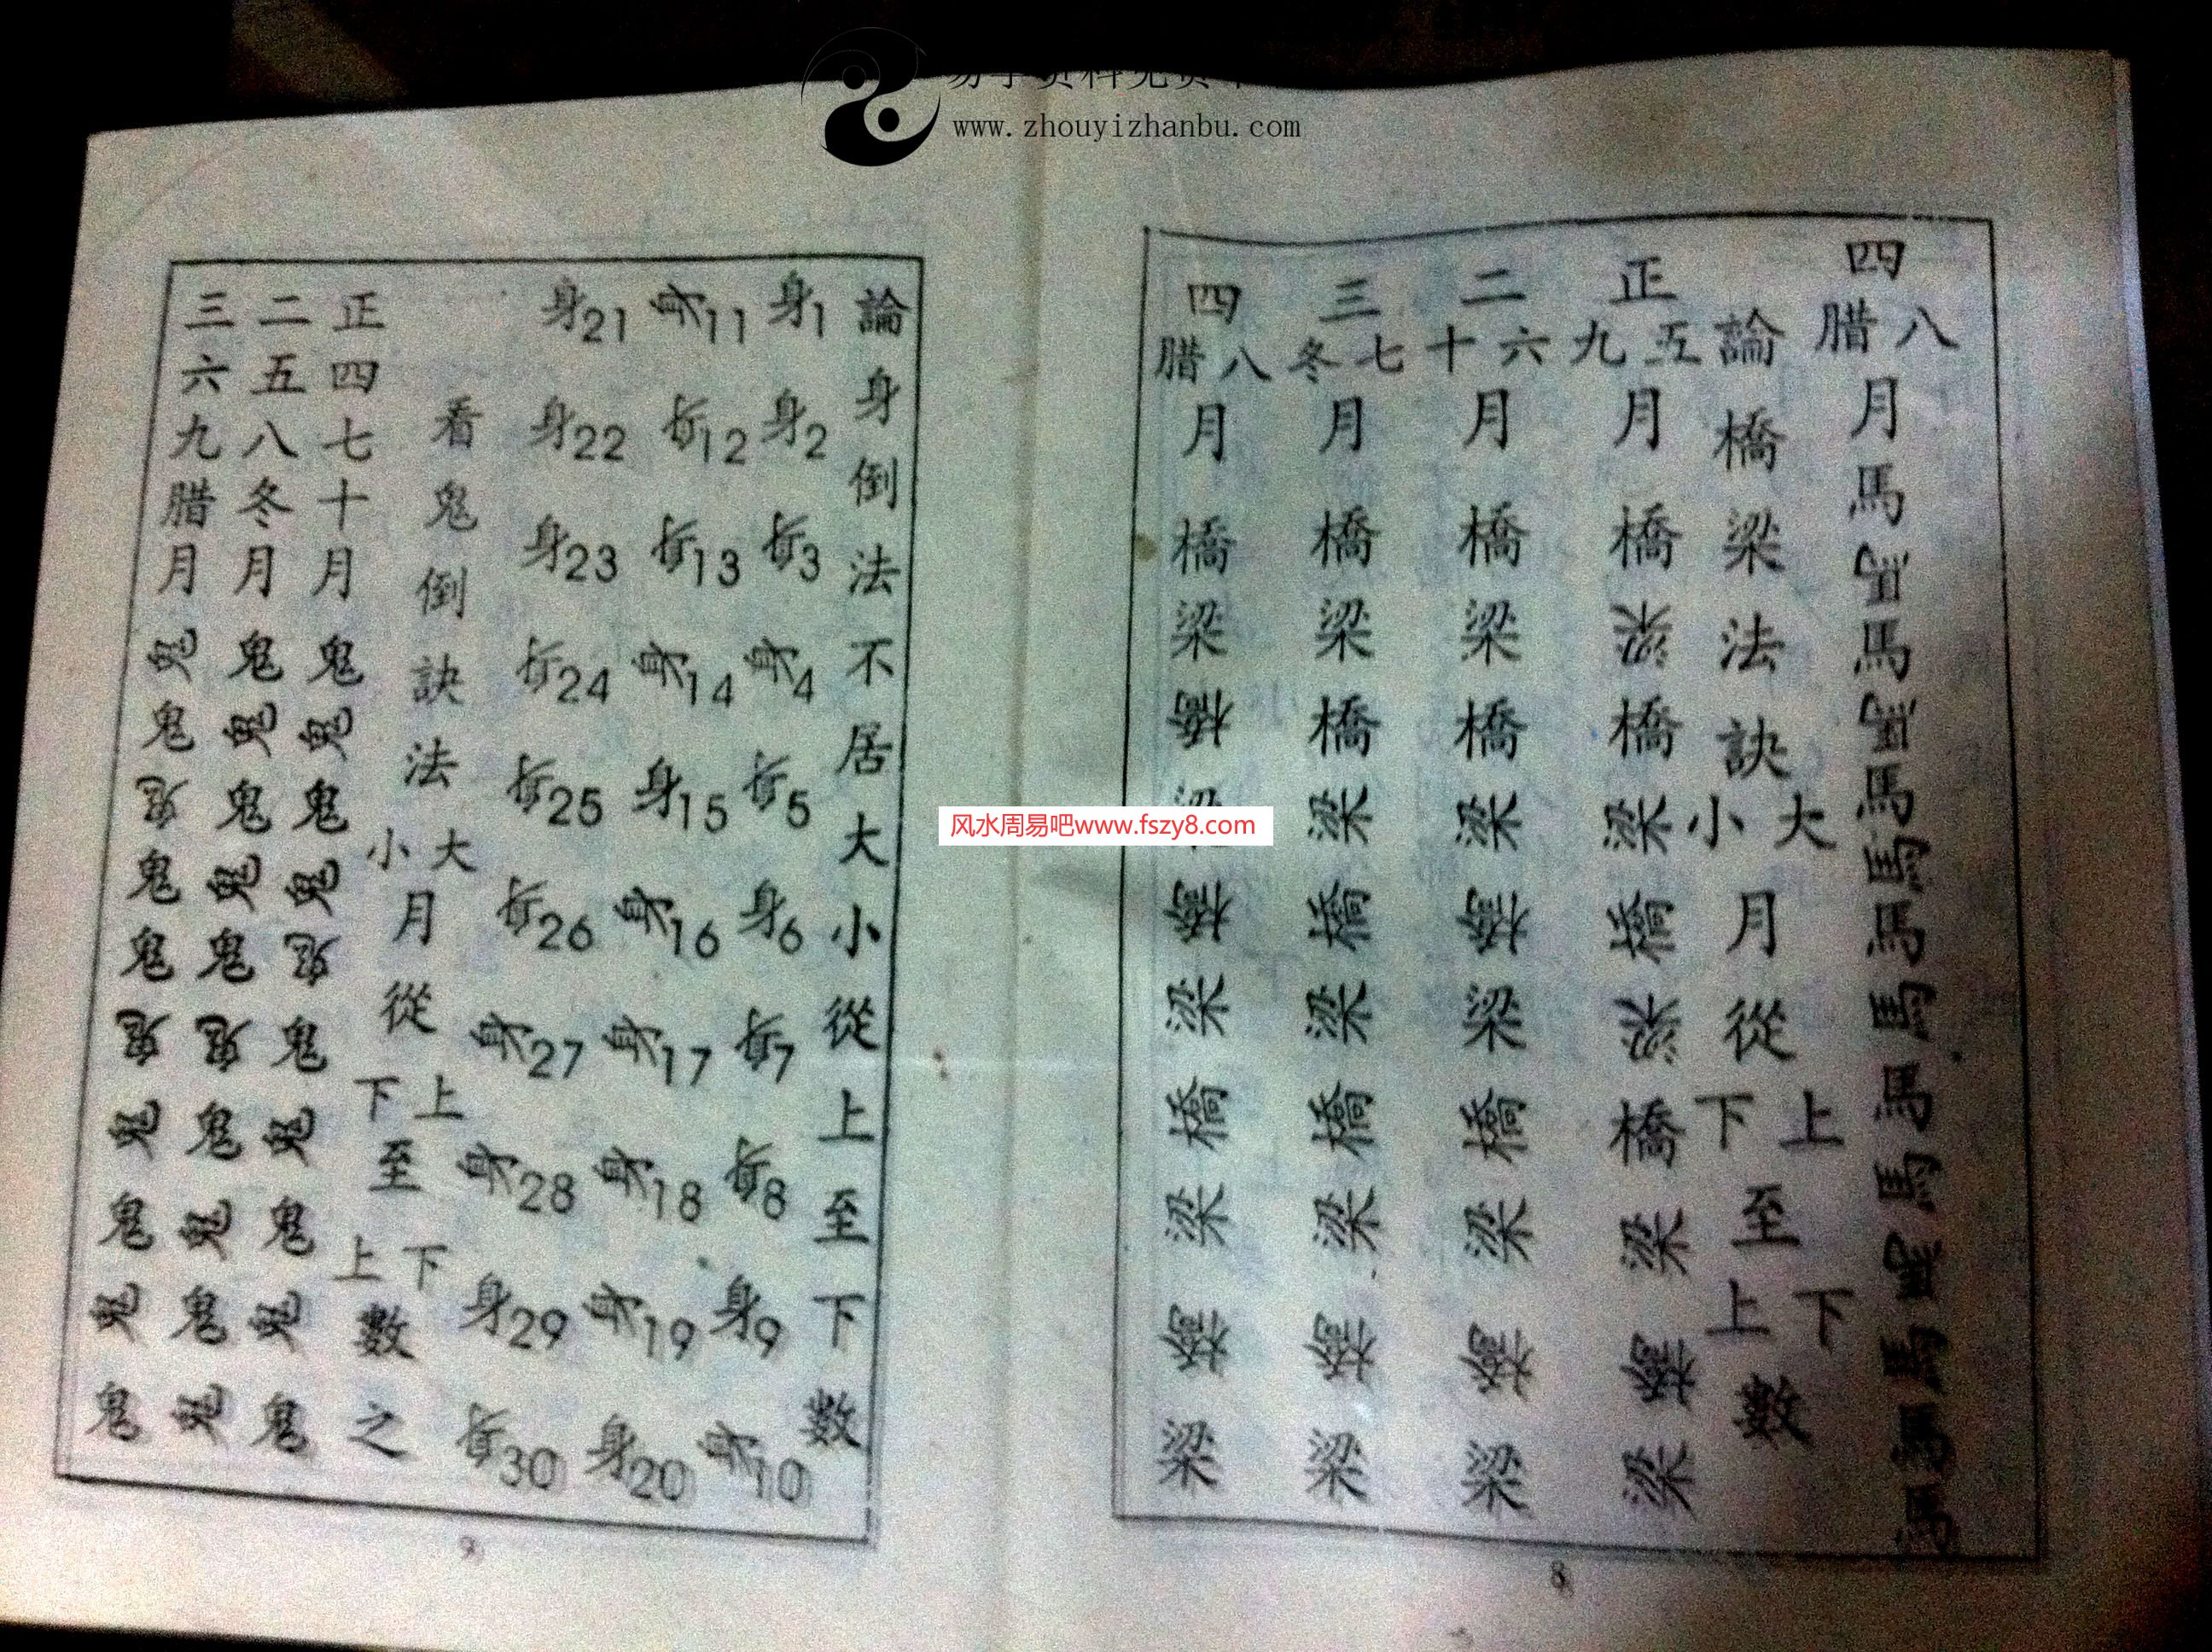 www.zhouyizhanbu.com
四八腊月馬馬馬馬馬馬馬馬馬馬馬馬馬馬
論橋梁法訣大小月從上下至下上數
正五九月橋梁橋梁橋梁橋梁橋梁
二六十月橋梁橋梁橋梁橋梁橋梁
三七冬月橋梁橋梁橋梁橋梁橋梁
四八腊月橋梁橋梁橋梁橋梁橋梁
8
風水周易吧www.fszy8.com
論身倒法不居大小從上至下數
身1 身2 身3 身4 身5 身6 身7 身8 身9 身10
身11 身12 身13 身14 身15 身16 身17 身18 身19 身20
身21 身22 身23 身24 身25 身26 身27 身28 身29 身30
看鬼倒訣法大小月從上下至下上數之
正四七十月鬼鬼鬼鬼鬼鬼鬼鬼鬼鬼
二五八冬月鬼鬼鬼鬼鬼鬼鬼鬼鬼鬼
三六九腊月鬼鬼鬼鬼鬼鬼鬼鬼鬼鬼
9